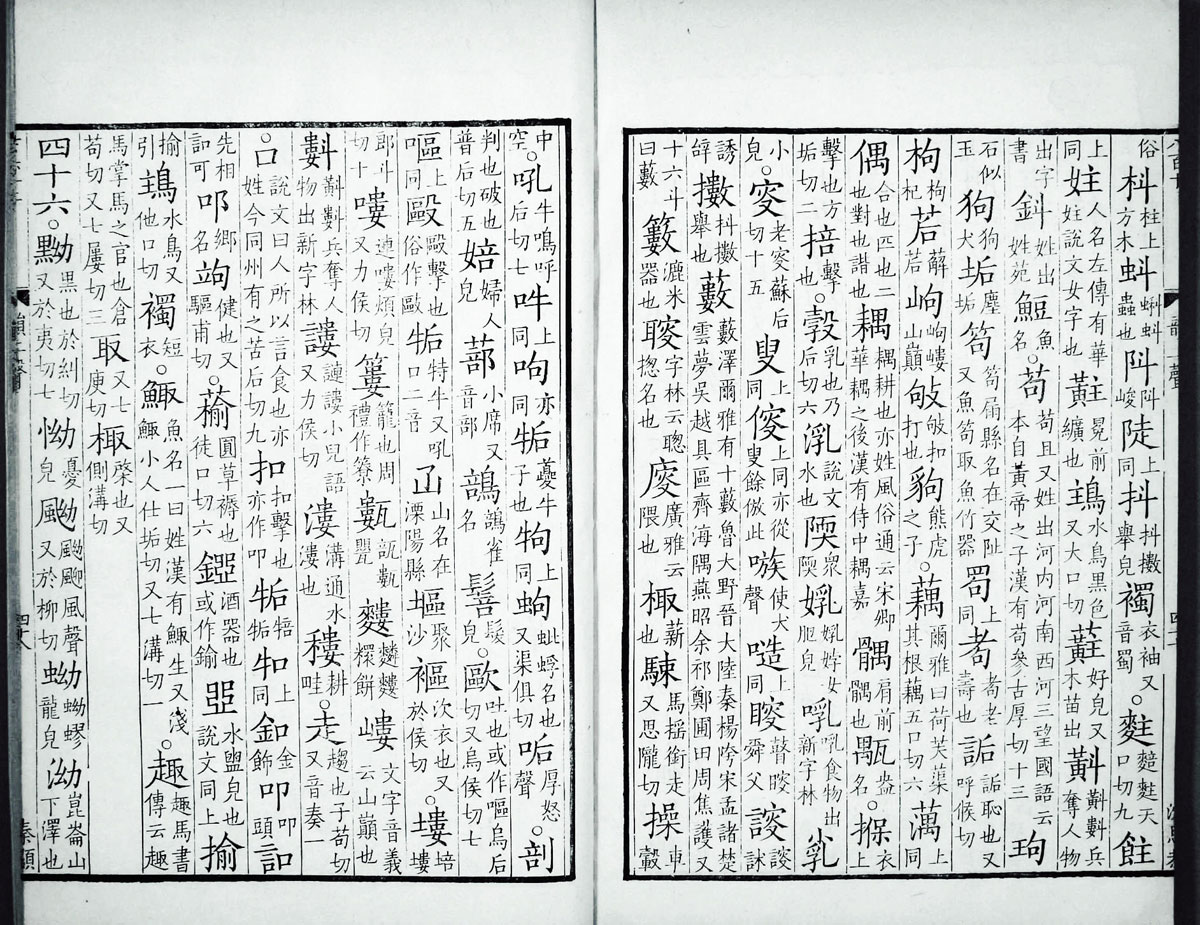 俗枓柱上方木蚪蝌蚪蟲也阧阧峻陡上同抖抖擻舉皃襡衣袖又音蜀○䴷䴷天口切九飳
上同妵人名左傳有華妵說文女字也黈冕前纊也水鳥黑色又大口切蘣好皃又木苗出兵奪人物
出字書鈄姓出姓苑魚名○苟苟且又姓出河内河南西河三望國語云本自黃帝之子漢有苟參古厚切十三玽
石似玉狗狗犬垢塵垢笱笱扁縣名在交阯又魚笱取魚竹器上同耇耇老壽也詬詬恥也又呼候切
枸枸杞茩薢茩岣岣嶁山巔敂敂扣打也豿熊虎之子○藕爾雅曰荷芙蕖其根藕五口切六上同
偶合也匹也二也對也諧也耦耦耕也亦姓風俗通云宋卿華耦之後漢有侍中耦嘉髃肩前髃也盎名○衣上
擊也方垢切二掊擊也○㝅乳也乃后切六說文水也陾衆陾食物出新字林
小皃○老叜蘇后切十五叟上同傁上同亦從叟餘倣此嗾使犬聲上同瞍瞽瞍舜父謏謏訹
誘辝擻抖擻舉也藪藪澤爾雅有十藪魯大野晉大陸秦楊陓宋孟諸楚雲夢吳越具區齊海隅燕昭余祁鄭圃田周焦護又
十六斗曰藪籔漉米器也字林云聰揔名也廋廣雅云隈也棷薪也駷馬揺銜走又思隴切車轂
中空○吼牛鳴呼后切七吽上同呴亦同夔牛子也上同蚼蚍蜉名也又渠俱切厚怒聲○剖
判也破也普后切五婄婦人皃蔀小席又音部雀名髮皃○歐吐也或作嘔烏后切又烏侯切七
嘔上同毆毆擊也俗作敺特牛又吼口二音山名在溧陽縣塸聚沙次衣也又於侯切○塿培塿
郎斗切十嘍連嘍煩皃又力侯切簍籠也周禮作簝甊瓿甊甖餅嶁文字音義云山巔也
兵奪人物出新字林謱謰謱小兒語又力侯切漊溝通水漊也耬耕畦○走趨也子苟切又音奏一
○口說文曰人所以言食也亦姓今同州有之苦后切九扣扣擊也亦作叩上同釦金飾叩叩頭訆
先相訆可名健也又驅甫切○圓草褥也徒口切六酒器也或作鋀說文同上水盥皃也揄
揄引水鳥又他口切襡短衣○鯫魚名一曰姓漢有鯫生又淺鯫小人仕垢切又七溝切一○趣趣馬書傳云趣
馬掌馬之官也倉苟切又七屨切三取又七庾切棷棨也又側溝切
四十六○黝黑也於糾切又於夷切七怮憂皃颲風聲又於柳切蚴蚴蟉龍皃泑崑崙山下澤也